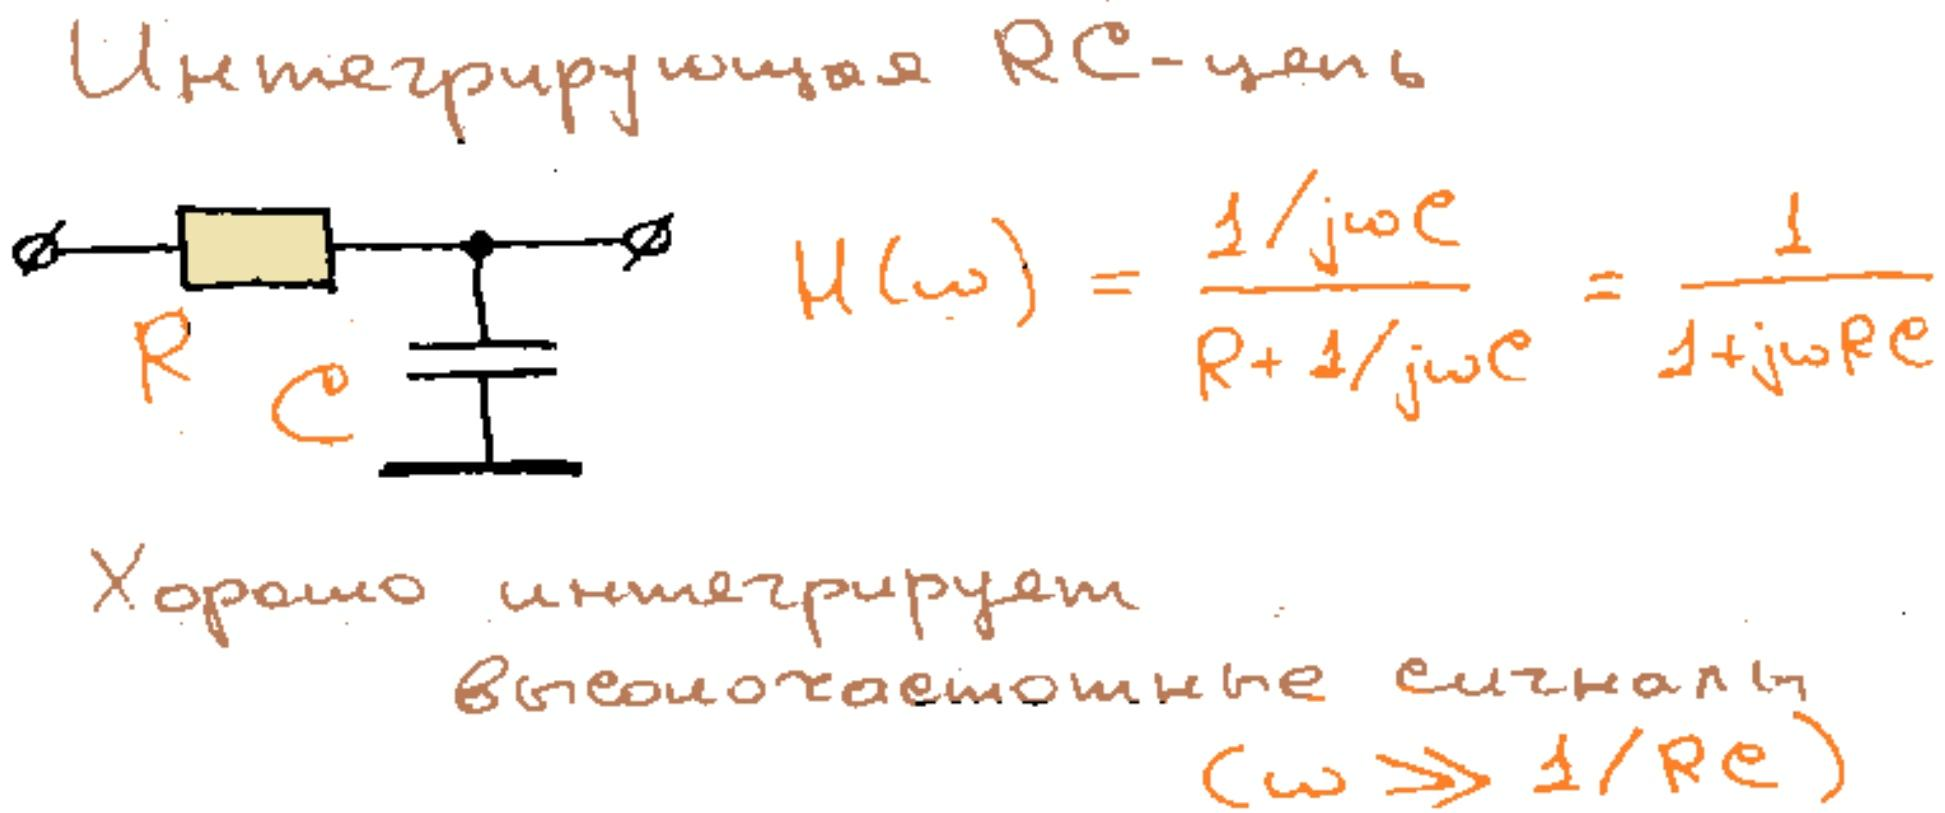 Интегрирующая RC-цепь
H(ω) = (1/jωC)/(R+1/jωC) = 1/(1+jωRC)
R
C
Хорошо интегрирует
высокочастотные сигналы
(ω ≫ 1/RC)